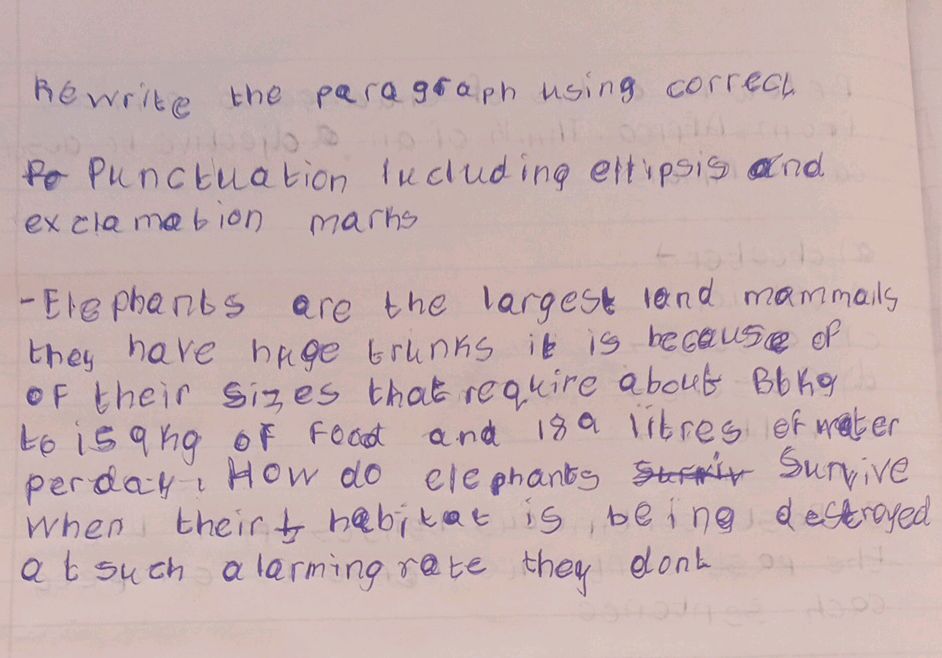 Rewrite the paragraph using correct
Punctuation Including ellipsis and
exclamation marks
-Elephants are the largest land mammals
they have huge trunks it is because of
of their sizes that require about
to 159kg of Food and 189 litres of water
per day. How do elephants Survive
when their habitat is being destroyed
at such alarming rate they dont